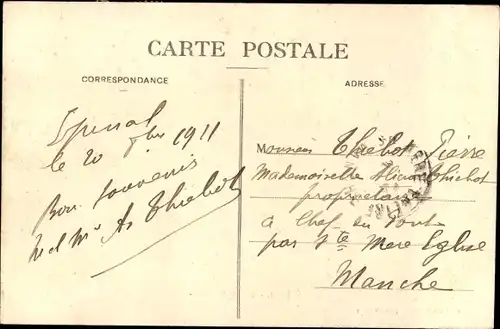 CARTE POSTALE
CORRESPONDANCE
ADRESSE
Epinal
le 20 bre 1911
Bon souvenir
A Thiebot
Monsieur Thiebot Pierre
Mademoiselle Thiebot
propriétaire
à Chef du Pont
par Ste Mere Eglise
Manche